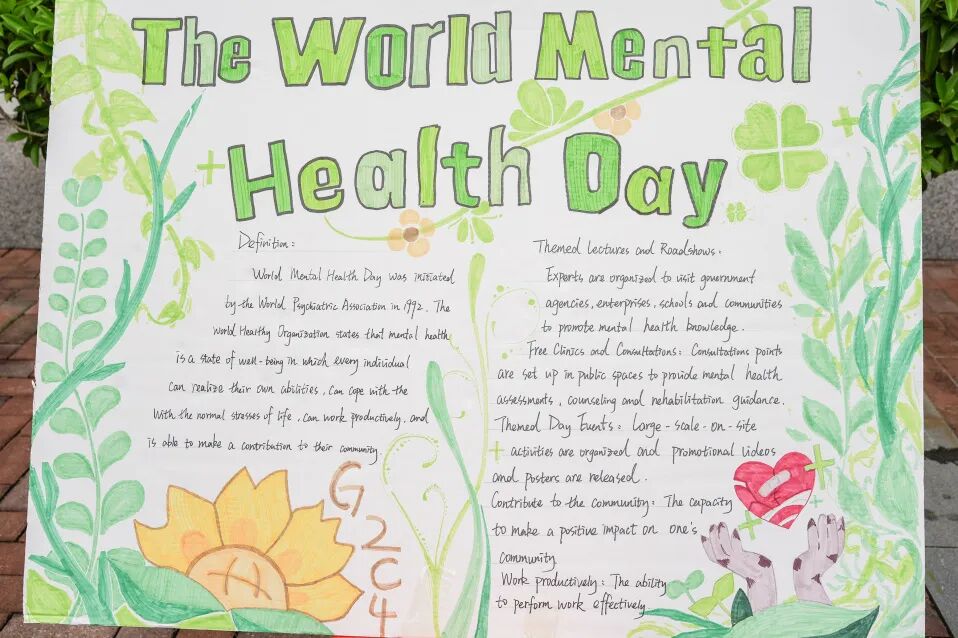 The World Mental
Health Day
Definition:
World Mental Health Day was initiated
by the World Psychiatric Association in 1992. The
World Healthy Organization states that mental health
is a state of well-being in which every individual
can realize their own abilities, can cope with the
with the normal stresses of life, can work productively, and
is able to make a contribution to their community
G2C4
Themed Lectures and Roadshows.
Experts are organized to visit government
agencies, enterprises, schools and communities
to promote mental health knowledge.
Free Clinics and Consultations: Consultations points
are set up in public spaces to provide mental health
assessments, counseling and rehabilitation guidance.
Themed Day Events: large-scale-on-site
activities are organized and promotional videos
and posters are released.
Contribute to the community: The capacity
to make a positive impact on one's
community
Work productively: The ability
to perform work effectively